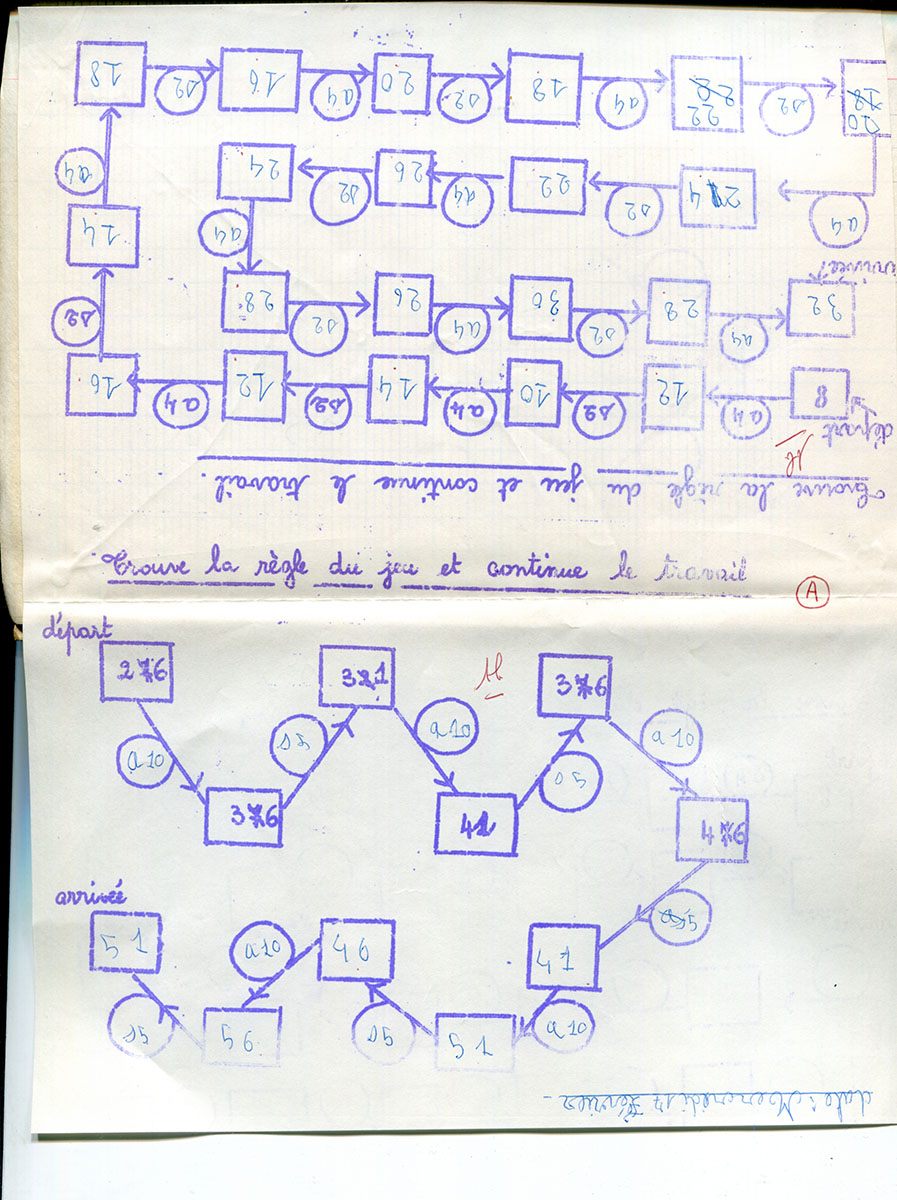 Trouve la règle du jeu et continue le travail.
Tb
départ
8 a4 12 s2 10 a4 14 s2 12 a4 16
s2 14 a4
18 s2 16 a4 20 s2 18 a4 22 s2 20
a4 24 s2 22 a4 26 s2 24
a4 28 s2 26 a4 30 s2 28 a4 32
arrivée
Trouve la règle du jeu et continue le travail.
A
départ
Tb
26 a10 36 s5 31 a10 41 s5 36 a10 46
s5 41 a10 51 s5 46 a10 56 s5 51
arrivée
date: Mercredi 17 Février